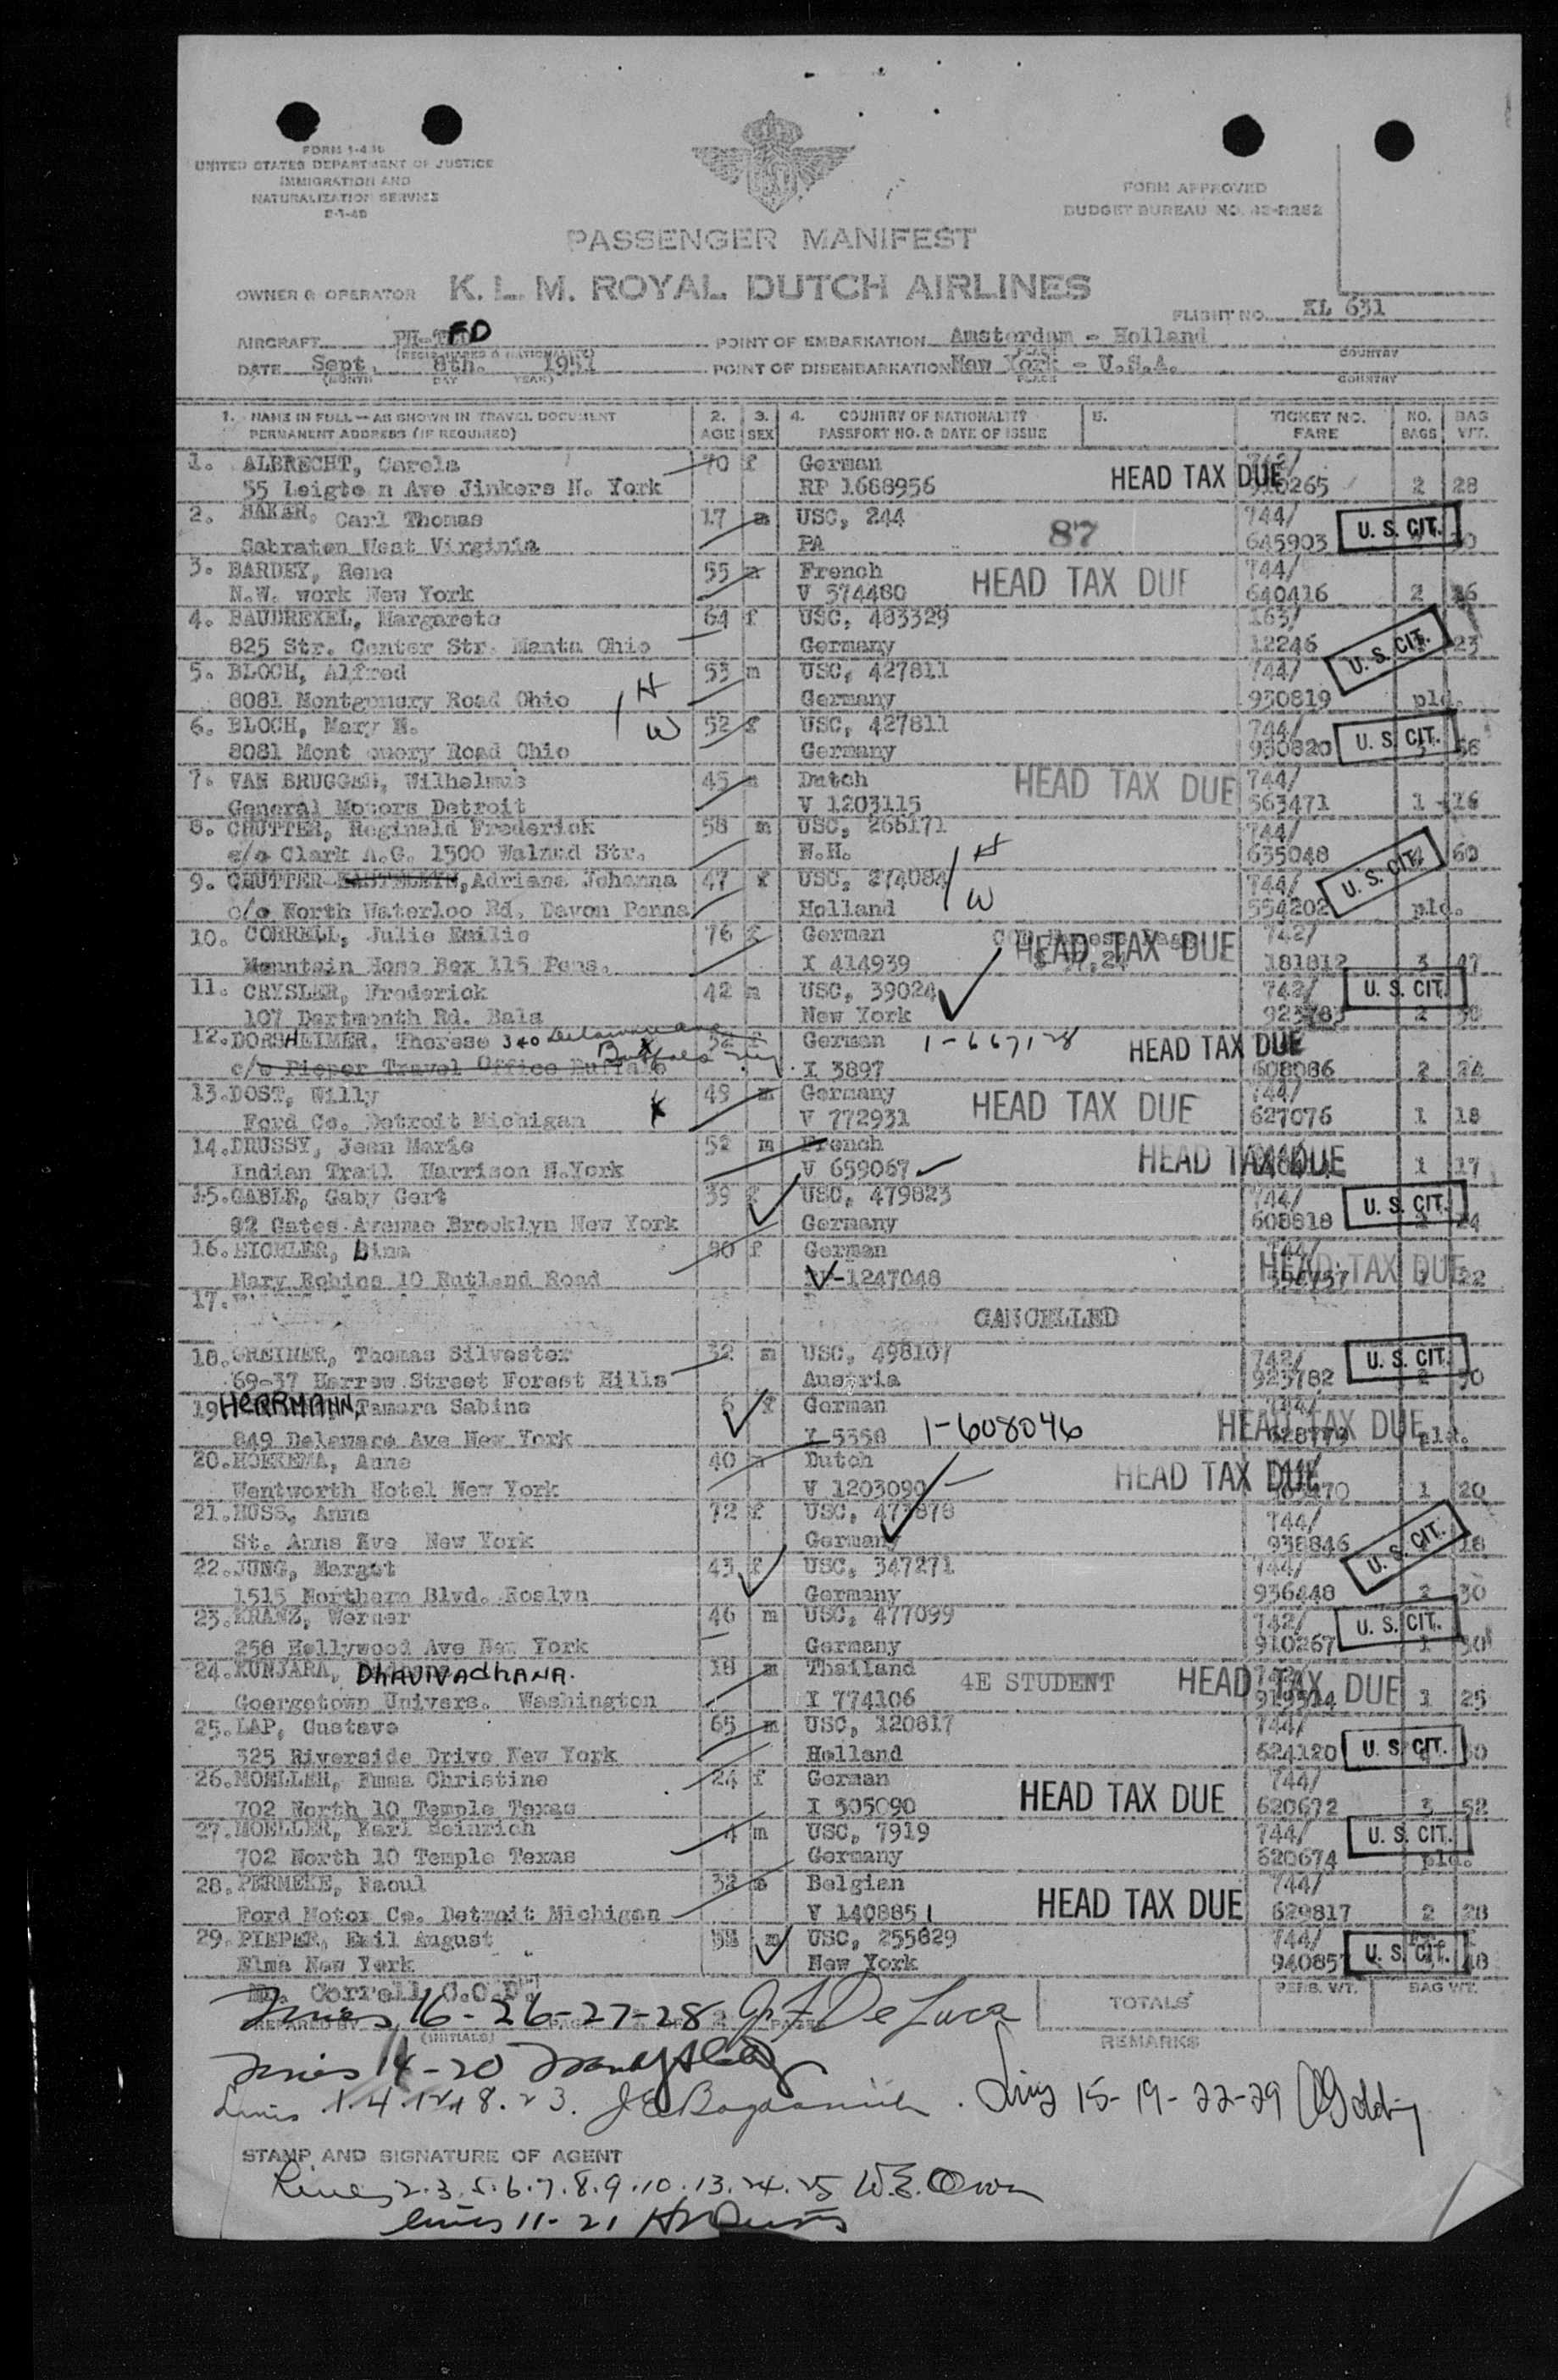 FORM I-430
UNITED STATES DEPARTMENT OF JUSTICE
IMMIGRATION AND
NATURALIZATION SERVICE
FORM APPROVED
BUDGET BUREAU NO. 43-R252
PASSENGER MANIFEST
OWNER & OPERATOR K. L. M. ROYAL DUTCH AIRLINES
FLIGHT NO. KL 631
AIRCRAFT PH-TFD POINT OF EMBARKATION Amsterdam - Holland
DATE Sept. 8th. 1951 POINT OF DISEMBARKATION New York - U.S.A.
(MONTH DAY YEAR) PLACE COUNTRY
1. NAME IN FULL — AS SHOWN IN TRAVEL DOCUMENT 2. 3. 4. COUNTRY OF NATIONALITY 5. TICKET NO. NO. BAG
PERMANENT ADDRESS (IF REQUIRED) AGE SEX PASSPORT NO. & DATE OF ISSUE FARE BAGS WT.
1. ALBRECHT, Carola 70 f German 742/
55 Leigte n Ave Jinkers N. York RP 1688956 HEAD TAX DUE 910265 2 28
2. BAKER, Carl Thomas 17 m USC, 244 744/
Sabraton West Virginia PA 87 645903 U. S. CIT.
3. BARDEY, Rene 55 m French 744/
N.W. work New York V 574480 HEAD TAX DUE 640416 2 26
4. BAUDREXEL, Margarete 64 f USC, 483329 163/
825 Str. Center Str. Manta Ohio Germany 12246 U. S. CIT. 23
5. BLOCH, Alfred 53 m USC, 427811 744/
8081 Montgomury Road Ohio H Germany 930819 pld.
6. BLOCH, Mary N. W 52 f USC, 427811 744/
8081 Mont quory Road Ohio Germany 930820 U. S. CIT. 56
7. VAN BRUGGEN, Wilhelmus 45 m Dutch 744/
General Motors Detroit V 1203115 HEAD TAX DUE 563471 1 16
8. CHUTTER, Reginald Frederick 58 m USC, 266171 744/
c/o Clark A.G. 1500 Walnud Str. N.H. H 635048 U. S. CIT. 60
9. CHUTTER, Adriana Johanna 47 f USC, 274084 744/
c/o North Waterloo Rd. Devon Penna Holland W 554202 pld.
10. CORRELL, Julie Emilie 76 f German 742/
Mountain Home Box 115 Pens. I 414939 HEAD TAX DUE 181812 3 47
11. CRYSLER, Frederick 42 m USC, 39024 742/
107 Dartmonth Rd. Bala New York 923783 U. S. CIT. 2
12. DORSHEIMER, Therese 340 Delaware Ave 52 f German 1-667128
c/o Pieper Travel Office Buffalo Buffalo N.Y. I 3897 HEAD TAX DUE 608086 2 24
13. DOST, Willy 49 m Germany 744/
Ford Co. Detroit Michigan V 772931 HEAD TAX DUE 627076 1 18
14. DRUSSY, Jean Marie 52 m French
Indian Trail Harrison N.York V 659067 HEAD TAX DUE 1 17
15. GABLE, Gaby Gert 39 f USC, 479823 744/
82 Gates Avenue Brooklyn New York Germany 608818 U. S. CIT. 24
16. EICHLER, Dina 80 f German 744/
Mary Robins 10 Rutland Road 1247048 HEAD TAX DUE 22
17. CANCELLED
18. GREINER, Thomas Silvester 32 m USC, 498107 742/
69-37 Harrow Street Forest Hills Austria 923782 U. S. CIT. 2 30
19. HERRMANN, Tamara Sabine 6 f German
849 Delaware Ave New York I 5558 1-608046 HEAD TAX DUE pld.
20. HOEKEMA, Anne 40 m Dutch
Wentworth Hotel New York V 1203090 HEAD TAX DUE 1 20
21. HUSS, Anna 72 f USC, 473878 744/
St. Anns Ave New York Germany 938846 U. S. CIT. 18
22. JUNG, Margot 43 f USC, 347271 744/
1515 Northern Blvd. Roslyn Germany 936448 2 30
23. KRANZ, Werner 46 m USC, 477099 742/
258 Hollywood Ave New York Germany 910267 U. S. CIT. 1 30
24. KUNJARA, DhAVIVAdhANA. 18 m Thailand 742/
Goergetown Univers. Washington I 774106 4E STUDENT HEAD TAX DUE 1 25
25. LAP, Gustave 65 m USC, 120817 744/
325 Riverside Drive New York Holland 624120 U. S. CIT. 30
26. MOELLER, Emma Christine 24 f German 744/
702 North 10 Temple Texas I 305090 HEAD TAX DUE 620672 3 52
27. MOELLER, Karl Heinrich 4 m USC, 7919 744/
702 North 10 Temple Texas Germany 620674 U. S. CIT. pld.
28. PERMEKE, Raoul 32 m Belgian 744/
Ford Motor Co. Detroit Michigan V 140885 HEAD TAX DUE 629817 2 28
29. PIEPER, Emil August m USC, 255829 744/
Elma New York New York 94085 U. S. CIT. 48
Mr. Correll C.O.D. TOTALS PERS. WT. BAG WT.
Lines 16-26-27-28 J. F. De Luca
(INITIALS) REMARKS
Lines 14-20
Lines 1.4.12.18.23. Lines 15-19-22-29
STAMP AND SIGNATURE OF AGENT
Lines 2.3.5.6.7.8.9.10.13.24.25 W.E. Owen
lines 11-21